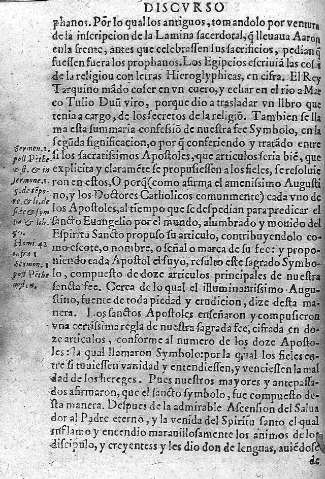 DISCVRSO
phanos. Por lo qual los antiguos, tomandolo por ventura
de la inscripcion de la Lamina sacerdotal, q̃ lleuaua Aaron
en la frente, antes que celebrassen sus sacrificios, pedian q̃
fuessen fuera los prophanos. Los Egipcios escriuiã las cosas
de la religiou con letras Hieroglyphicas, en cifra. El Rey
Tarquino mãdo coser en vn cuero, y echar en el rio a Mar
co Tulio Duũ viro, porque dio a trasladar vn libro que
tenia a cargo, de los secretos de la religiõ. Tambien se lla
ma esta summaria confessiõ de nuestra fee Symbolo, en la
segũda significacion, o por q̃ conferiendo y tratãdo entre
si los sacratissimos Apostoles, que articulos seria biẽ, que
explicita y claramẽte se propusiessen a los fieles, se resoluie
ron en estos, O porq̃ (como afirma el amenissimo Augusti
no, y los Doctores Catholicos comunmente) cada vno de
los Apostoles, al tiempo que se despedian para predicar el
sancto Euangelio por el mundo, alumbrado y mouido del
Espiritu Sancto propuso su articulo, contribuyendolo co-
mo escote, o nombre, o señal o marca de su fee: y propo-
niendo cada Apostol el suyo, resulto este sagrado Symbo-
lo, compuesto de doze articulos principales de nuestra
sancta fee. Cerca de lo qual el illuminantissimo Augu-
stino, fuente de toda piedad y erudicion, dize desta ma
nera. Los sanctos Apostoles enseñaron y compusieron
vna certissima regla de nuestra sagrada fee, cifrada en do-
ze articulos, conforme al numero de los doze Aposto-
les: la qual llamaron Symbolo: por la qual los fieles entre
si tuuiessen vanidad y entendiessen, y venciessen la mal
dad de los hereges. Pues nuestros mayores y antepassa-
dos afirmaron, que el sancto symbolo, fue compuesto de-
sta manera. Despues de la admirable Ascension del Salua
dor al Padre eterno, y la venida del Spiritu santo el qual
inflamo y encendio marauillosamente los animos de los
discipulo, y creyentes y les dio don de lenguas, auiẽdose
de